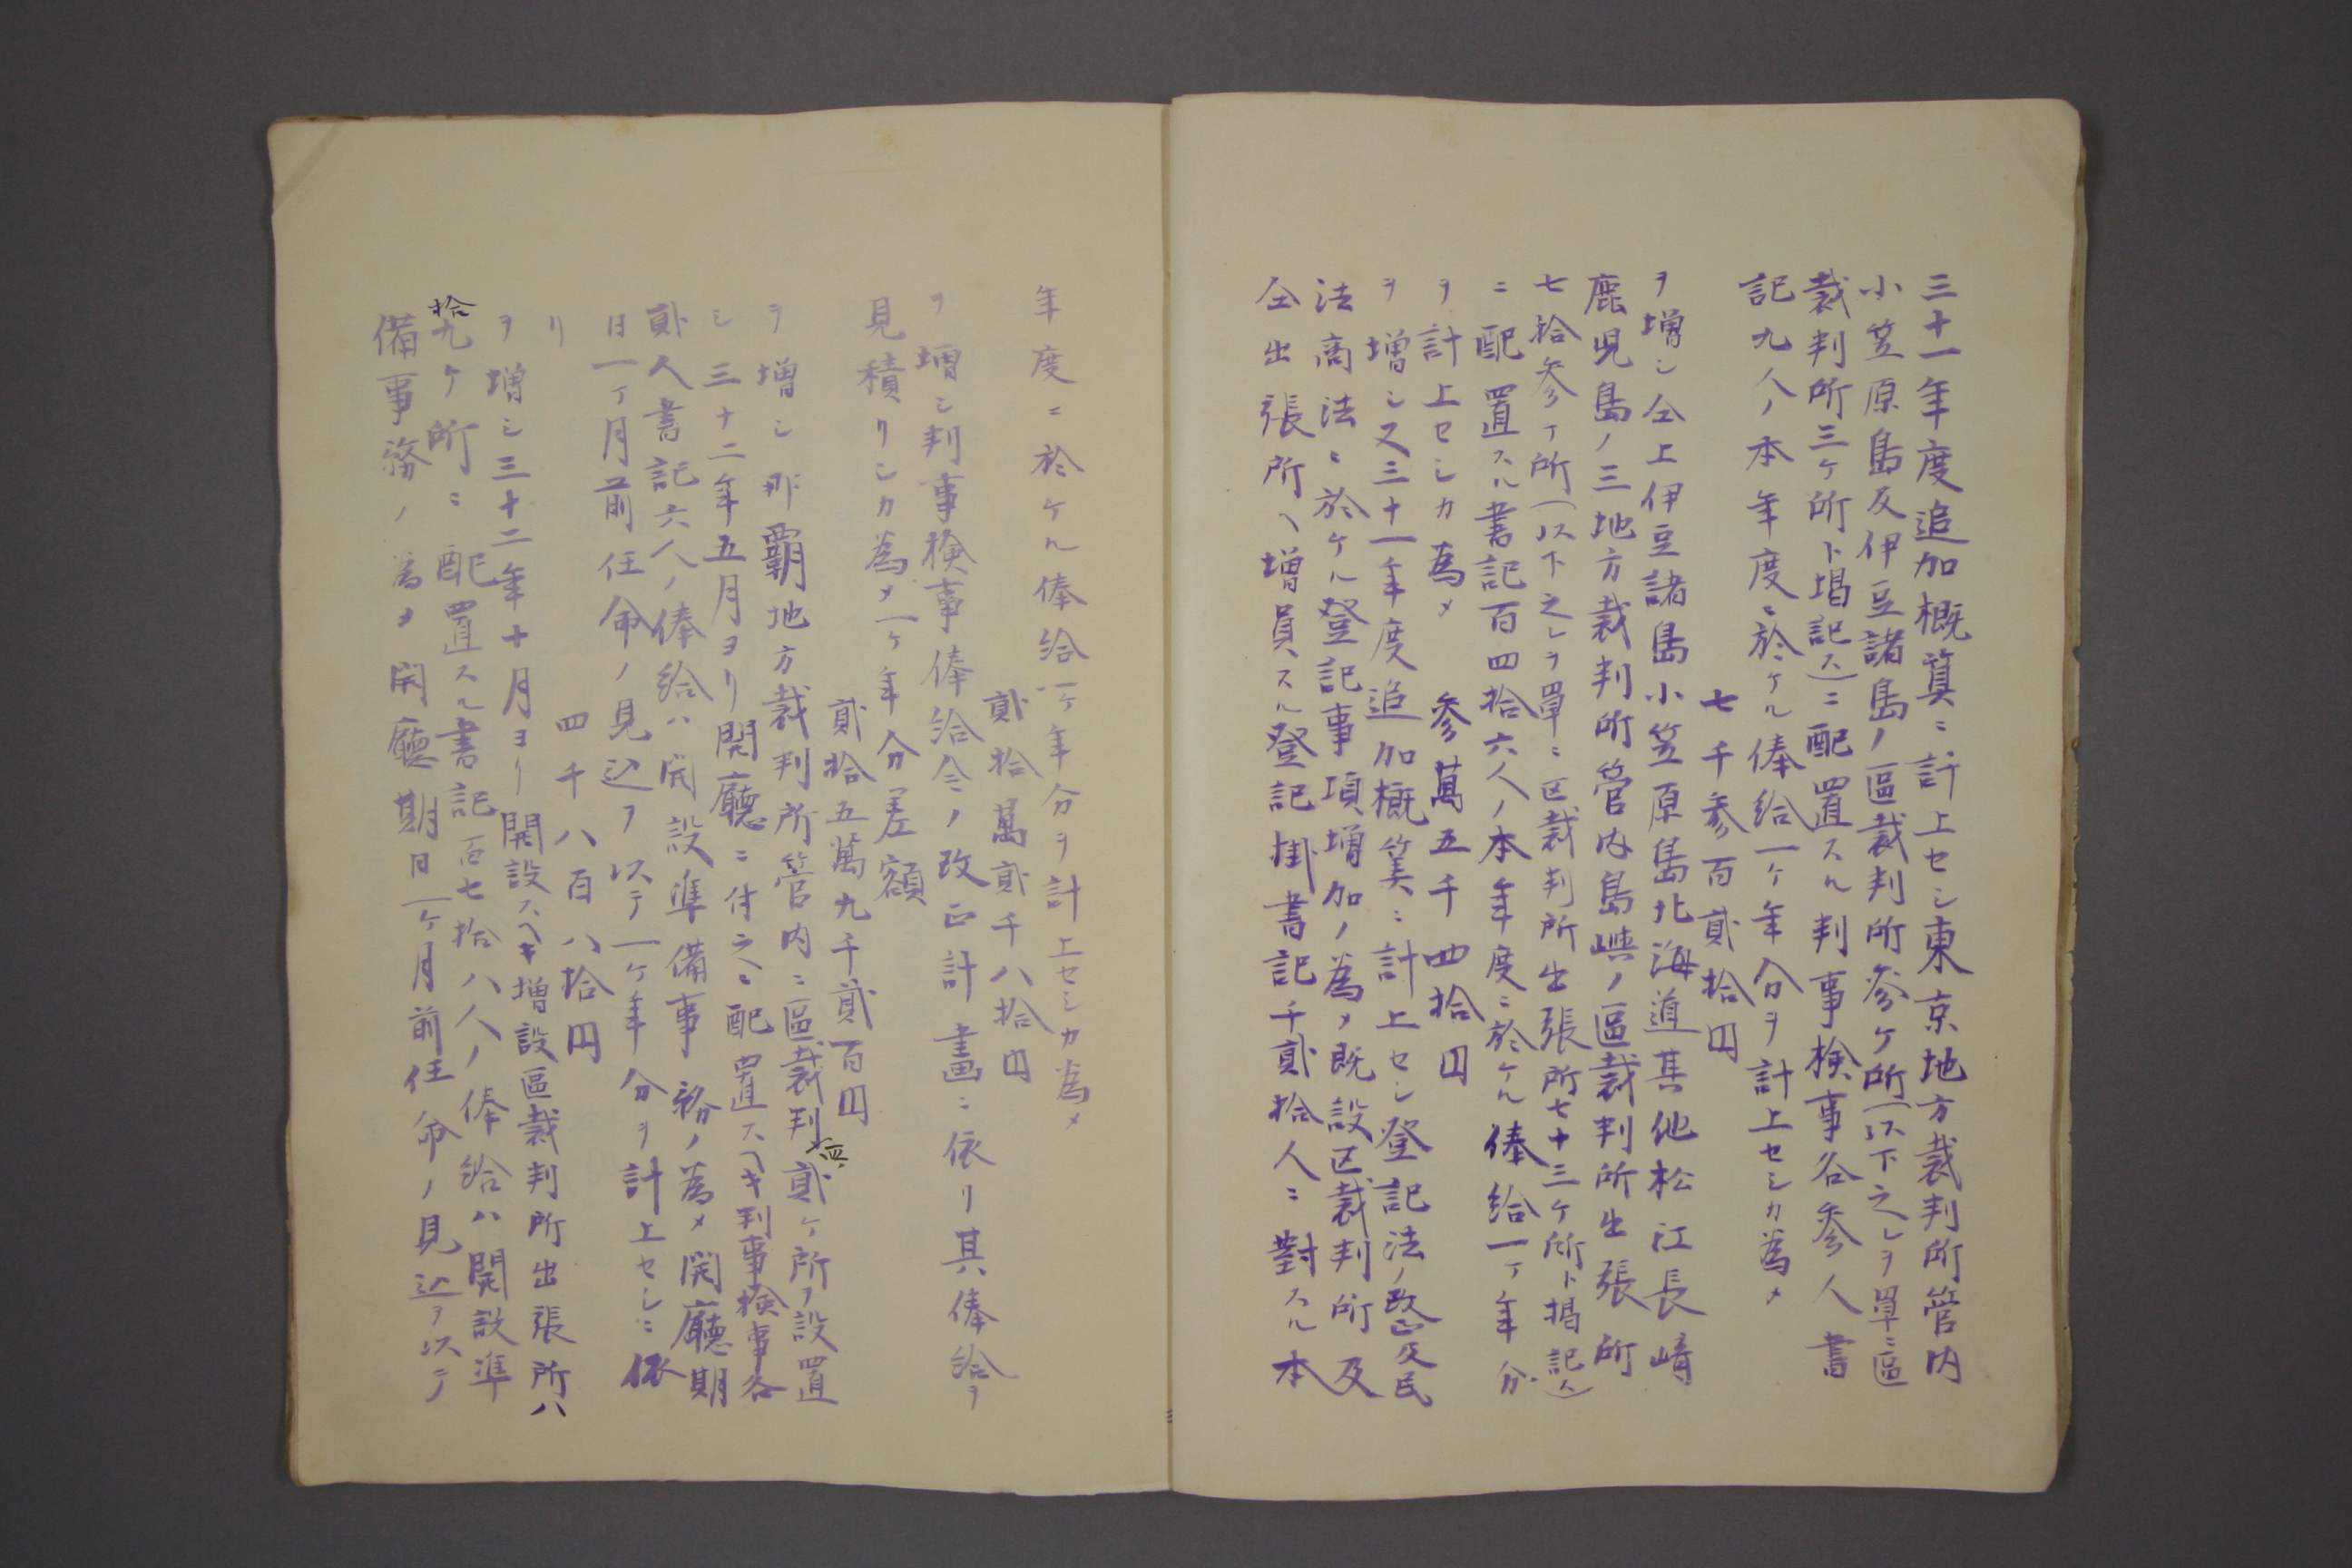 三十一年度追加概算ニ計上セシ東京地方裁判所管内
小笠原島及伊豆諸島ノ區裁判所参ケ所(以下之レヲ單ニ區
裁判所三ケ所ト掲記ス)ニ配置スル判事検事各参人書
記九人ノ本年度ニ於ケル俸給一ケ年分ヲ計上セシカ為メ
七千参百貳拾円
ヲ増シ仝上伊豆諸島小笠原島北海道其他松江長﨑
鹿児島ノ三地方裁判所管内島嶼ノ區裁判所出張所
七拾参ケ所(以下之レヲ單ニ区裁判所出張所七十三ケ所ト掲記ス)
ニ配置スル書記百四拾六人ノ本年度ニ於ケル俸給一ケ年分
ヲ計上セシカ為メ
参萬五千四拾円
ヲ増シ又三十一年度追加概算ニ計上セシ登記法ノ改正及民
法商法ニ於ケル登記事項増加ノ為メ既設区裁判所及
仝出張所ヘ増員スル登記掛書記千貳拾人ニ對スル本
年度ニ於ケル俸給一ケ年分ヲ計上セシカ為メ
貳拾萬貳千八拾円
ヲ増シ判事検事俸給令ノ改正計畫ニ依リ其俸給ヲ
見積リシカ為メ一ケ年分差額
貳拾五萬九千貳百円
ヲ増シ那覇地方裁判所管内ニ區裁判所貳ケ所ヲ設置
シ三十二年五月ヨリ開廳ニ付之ニ配置スヘキ判事検事各
貳人書記六人ノ俸給ハ開設準備事務ノ為メ開廳期
日一ケ月前任命ノ見込ヲ以テ一ケ年分ヲ計上セシニ依
リ
四千八百八拾円
ヲ増シ三十二年十月ヨリ開設スヘキ増設區裁判所出張所八
拾九ケ所ニ配置スル書記百七拾八人ノ俸給ハ開設準
備事務ノ為メ開廳期日一ケ月前任命ノ見込ヲ以テ